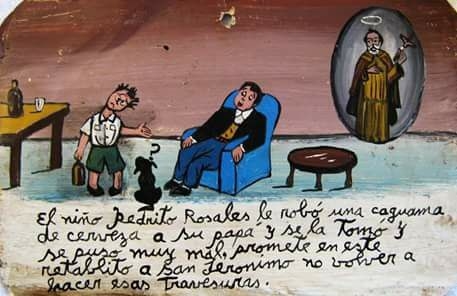 El niño Pedrito Rosales le robó una caguama
de cerveza a su papá y se la Tomo y
se puso muy mal, promete en este
retablito a San Jeronimo no volver a
hacer esas Travesuras.